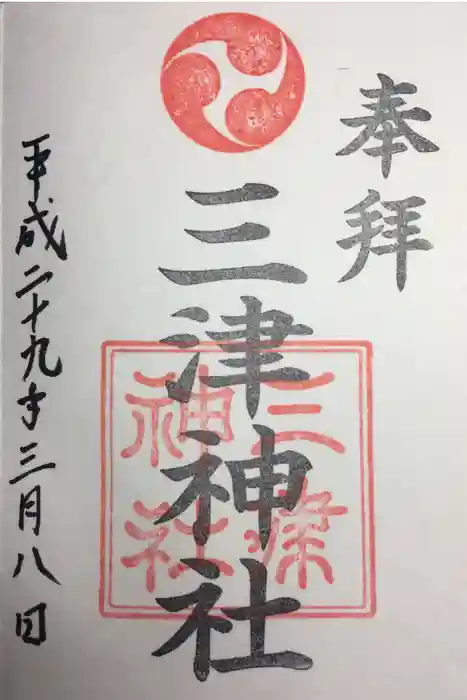 奉拝
三津神社
三津神社
平成二十九年三月八日